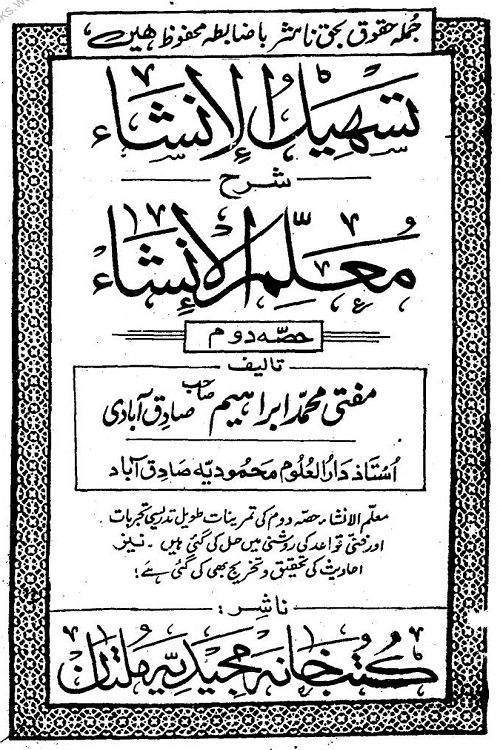 جملہ حقوق بحق ناشر باضابطہ محفوظ ھیں
تسھیل الإنشاء
شرح
معلّم الإنشاء
حصّہ دوم
تالیف
مفتی محمد ابراھیم صاحب صادق آبادی
اُستاذ دارالعلوم محمودیہ صادق آباد
معلم الانشاء حصہ دوم کی تمرینات طویل تدریسی تجربات
اور فنی قواعد کی روشنی میں حل کی گئی ہیں ۔ نیز
احادیث کی تحقیق و تخریج بھی کی گئی ہے!
ناشر:
کتب خانہ مجیدیہ ملتان